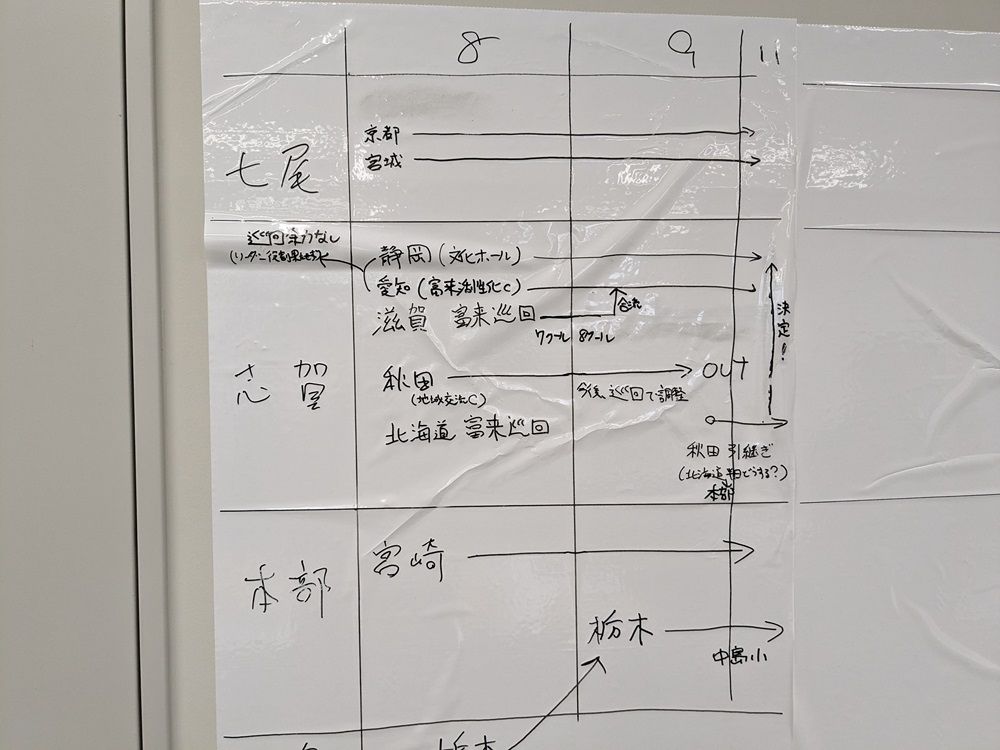 8 9 11
七尾
京都
宮城
巡回余力なし
静岡(文化ホール)
愛知(富来活性化C)
滋賀 富来巡回
合流
7クール 8クール
決定!
志賀
秋田
(地域交流C)
OUT
今後、巡回で調整
北海道 富来巡回
秋田 引継ぎ
(北海道 どうする?)
本部
本部
宮崎
栃木
中島小
栃木